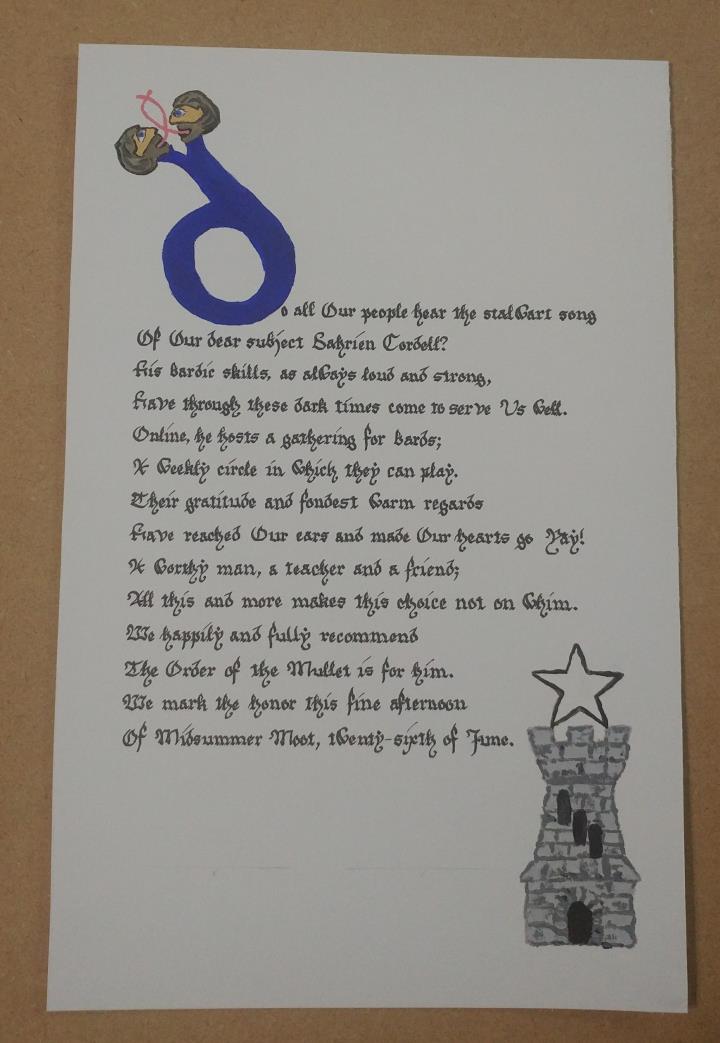 Do all Our people hear the stalwart song
Of Our dear subject Cordell?
His bardic skills, as always loud and strong,
Have through these dark times come to serve Us well.
Online, he hosts a gathering for bards;
A weekly circle in which they can play.
Their gratitude and fondest warm regards
Have reached Our ears and made Our hearts go Yay!
A worthy man, a teacher and a friend;
All this and more makes this choice not on whim.
We happily and fully recommend
The Order of the Mullet is for him.
We mark the honor this fine afternoon
Of Midsummer Moot, twenty-sixth of June.